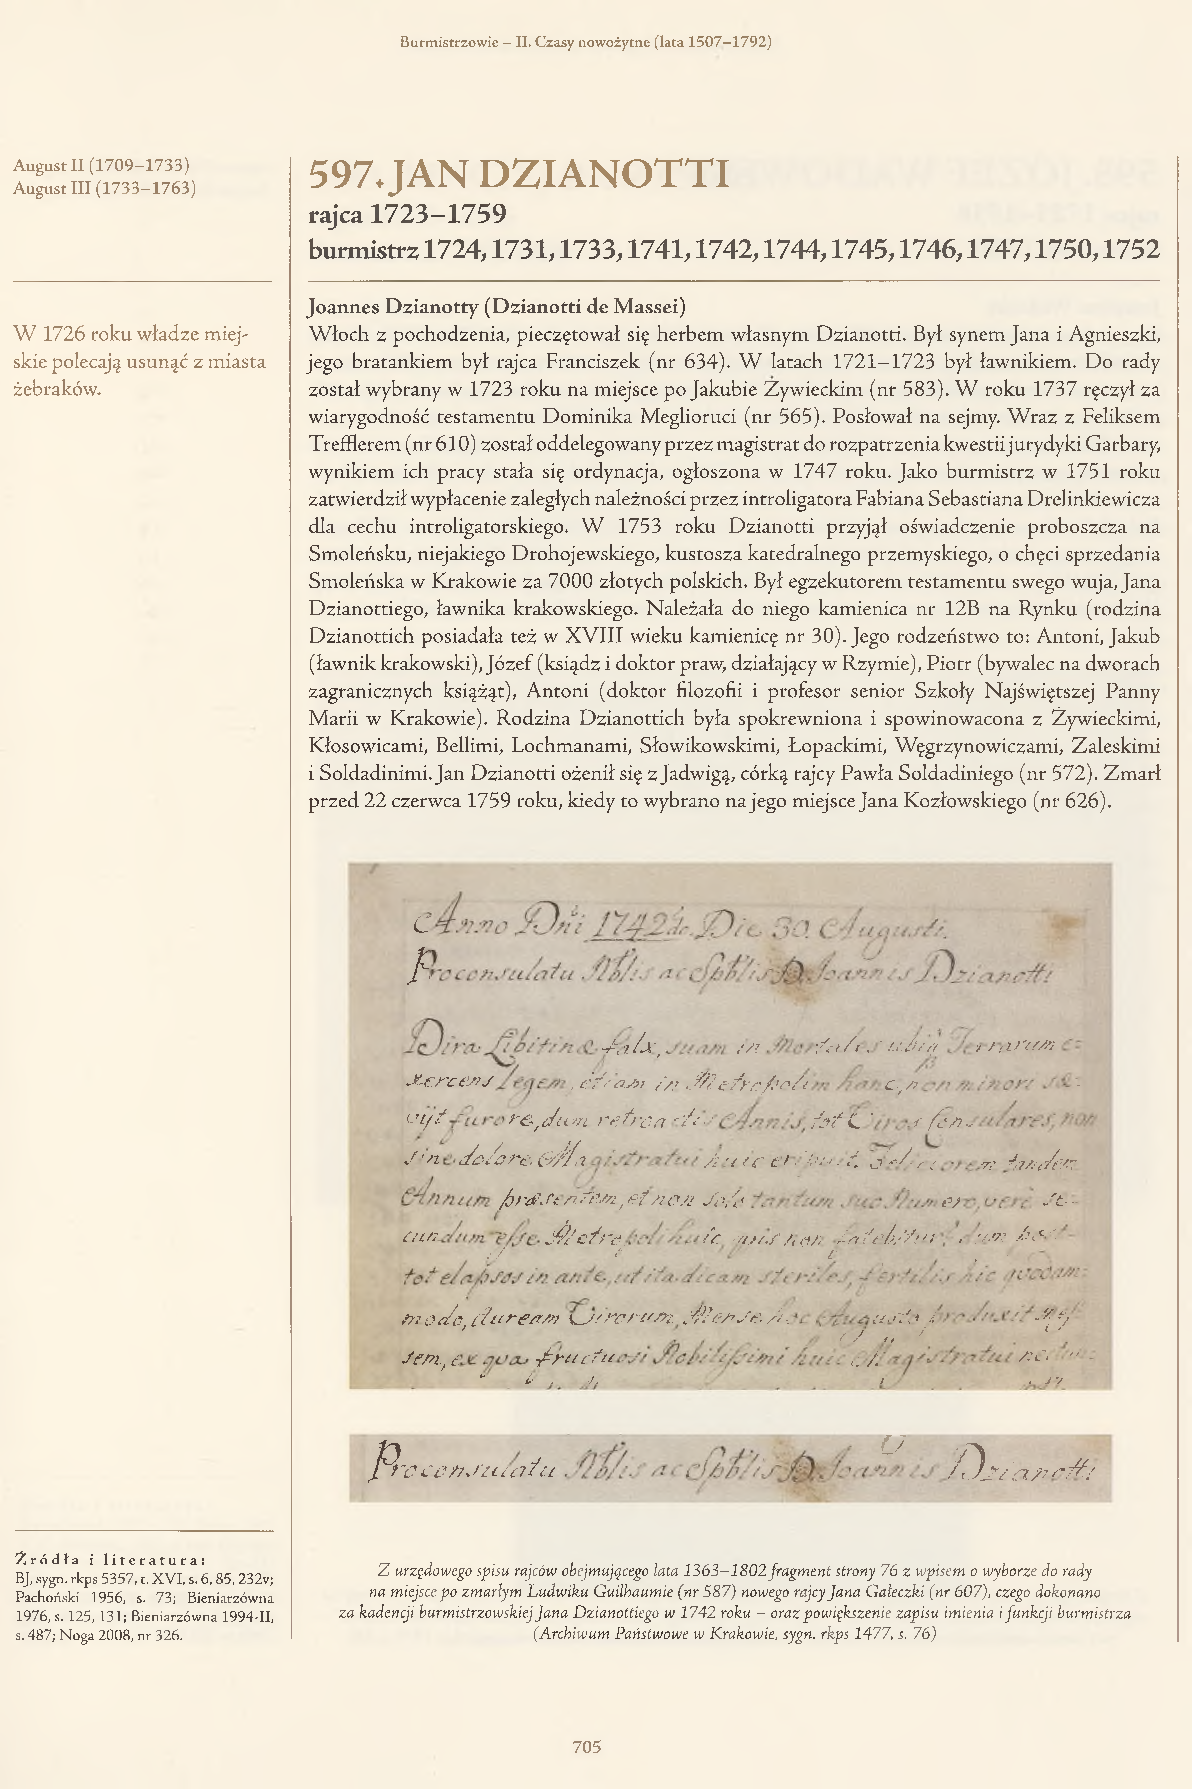 Burmistrzowie – II. Czasy nowożytne (lata 1507–1792)
August II (1709–1733)
August III (1733–1763)
W 1726 roku władze miej-
skie polecają usunąć z miasta
żebraków.
597. JAN DZIANOTTI
rajca 1723–1759
burmistrz 1724, 1731, 1733, 1741, 1742, 1744, 1745, 1746, 1747, 1750, 1752
Joannes Dzianotty (Dzianotti de Massei)
Włoch z pochodzenia, pieczętował się herbem własnym Dzianotti. Był synem Jana i Agnieszki,
jego bratankiem był rajca Franciszek (nr 634). W latach 1721–1723 był ławnikiem. Do rady
został wybrany w 1723 roku na miejsce po Jakubie Żywieckim (nr 583). W roku 1737 ręczył za
wiarygodność testamentu Dominika Meglioruci (nr 565). Posłował na sejmy. Wraz z Feliksem
Trefflerem (nr 610) został oddelegowany przez magistrat do rozpatrzenia kwestii jurydyki Garbary,
wynikiem ich pracy stała się ordynacja, ogłoszona w 1747 roku. Jako burmistrz w 1751 roku
zatwierdził wypłacenie zaległych należności przez introligatora Fabiana Sebastiana Drelinkiewicza
dla cechu introligatorskiego. W 1753 roku Dzianotti przyjął oświadczenie proboszcza na
Smoleńsku, niejakiego Drohojewskiego, kustosza katedralnego przemyskiego, o chęci sprzedania
Smoleńska w Krakowie za 7000 złotych polskich. Był egzekutorem testamentu swego wuja, Jana
Dzianottiego, ławnika krakowskiego. Należała do niego kamienica nr 12B na Rynku (rodzina
Dzianottich posiadała też w XVIII wieku kamienicę nr 30). Jego rodzeństwo to: Antoni, Jakub
(ławnik krakowski), Józef (ksiądz i doktor praw, działający w Rzymie), Piotr (bywalec na dworach
zagranicznych książąt), Antoni (doktor filozofii i profesor senior Szkoły Najświętszej Panny
Marii w Krakowie). Rodzina Dzianottich była spokrewniona i spowinowacona z Żywieckimi,
Kłosowicami, Bellimi, Lochmanami, Słowikowskimi, Łopackimi, Węgrzynowiczami, Zaleskimi
i Soldadinimi. Jan Dzianotti ożenił się z Jadwigą, córką rajcy Pawła Soldadiniego (nr 572). Zmarł
przed 22 czerwca 1759 roku, kiedy to wybrano na jego miejsce Jana Kozłowskiego (nr 626).
Anno Dni 1742do. Die 30. Augusti.
Proconsulatu Nblis ac Sptblis D. Joannis Dzianotti
Dira Libitinæ falx, suam in Mortales ubiq Terrarum e-
xercens legem, etiam in Metropolim hanc, non minori sæ-
vijt furore, dum retroactis Annis, tot Viros Consulares, non
sine dolore Magistratui huic eripuit. Feliciorem tandem
Annum præsentem, et non solo tantum suo Numero, vere se-
cundum esse Metropoli huic, quis non fatebitur? dum post
tot elapsos in ante, ut ita dicam steriles, fertilis hic quodam-
modo, Auream Virorum, Mense hoc Augusto produxit Mes-
sem, ex qua fructuosi Nobilissimi huic Magistratui
Proconsulatu Nblis ac Sptblis D. Joannis Dzianotti
Źródła i literatura:
BJ, sygn. rkps 5357, t. XVI, s. 6, 85, 232v;
Pachoński 1956, s. 73; Bieniarzówna
1976, s. 125, 131; Bieniarzówna 1994-II,
s. 487; Noga 2008, nr 326.
Z urzędowego spisu rajców obejmującego lata 1363–1802 fragment strony 76 z wpisem o wyborze do rady
na miejsce po zmarłym Ludwiku Guilhaumie (nr 587) nowego rajcy Jana Gałeczki (nr 607), czego dokonano
za kadencji burmistrzowskiej Jana Dzianottiego w 1742 roku – oraz powiększenie zapisu imienia i funkcji burmistrza
(Archiwum Państwowe w Krakowie, sygn. rkps 1477, s. 76)
705